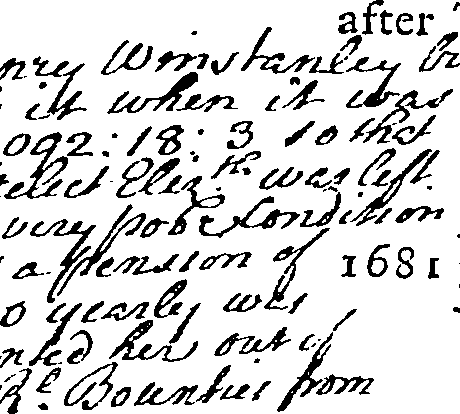 after
nry Winstanley bu
it when it was
092: 18: 3 so that
relict Eliz.th was left
very poor Condition
a pension of 1681
0 yearly was
nted her out of
Rl. Bounties from